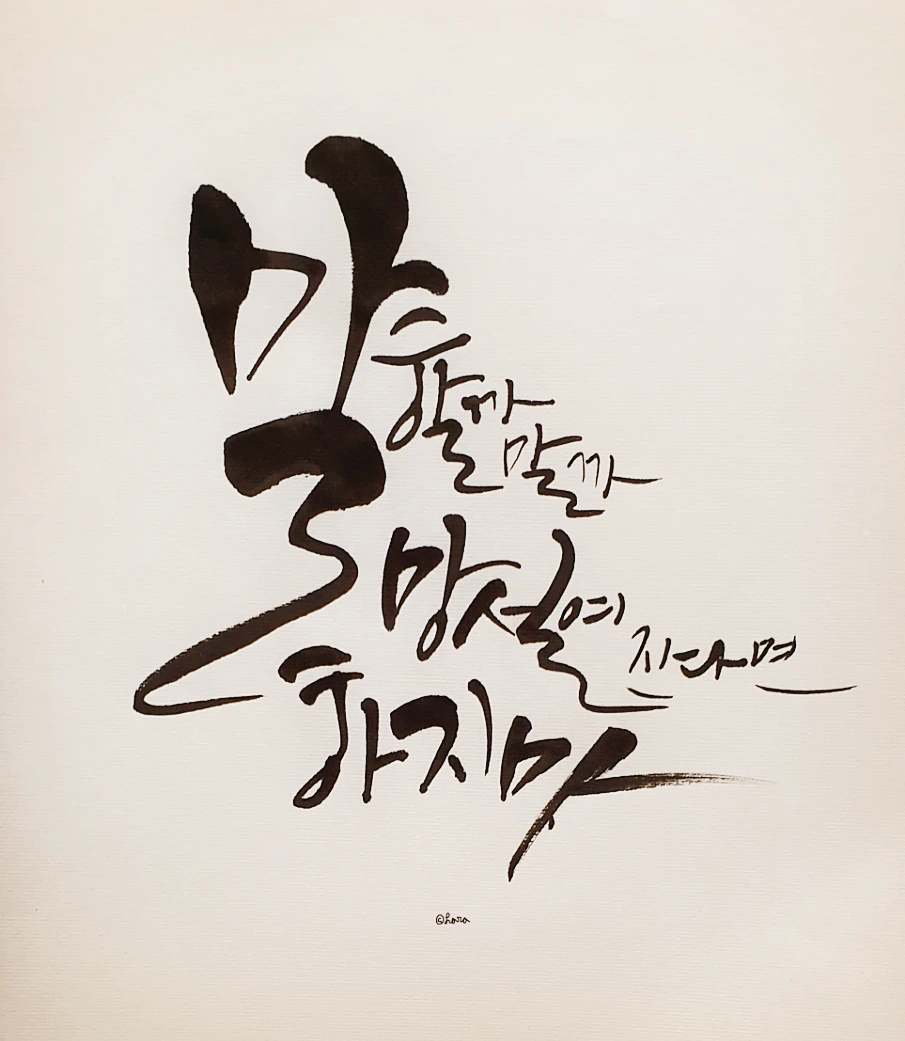 말
할까
말까
망설여진다면
하지마
©hara